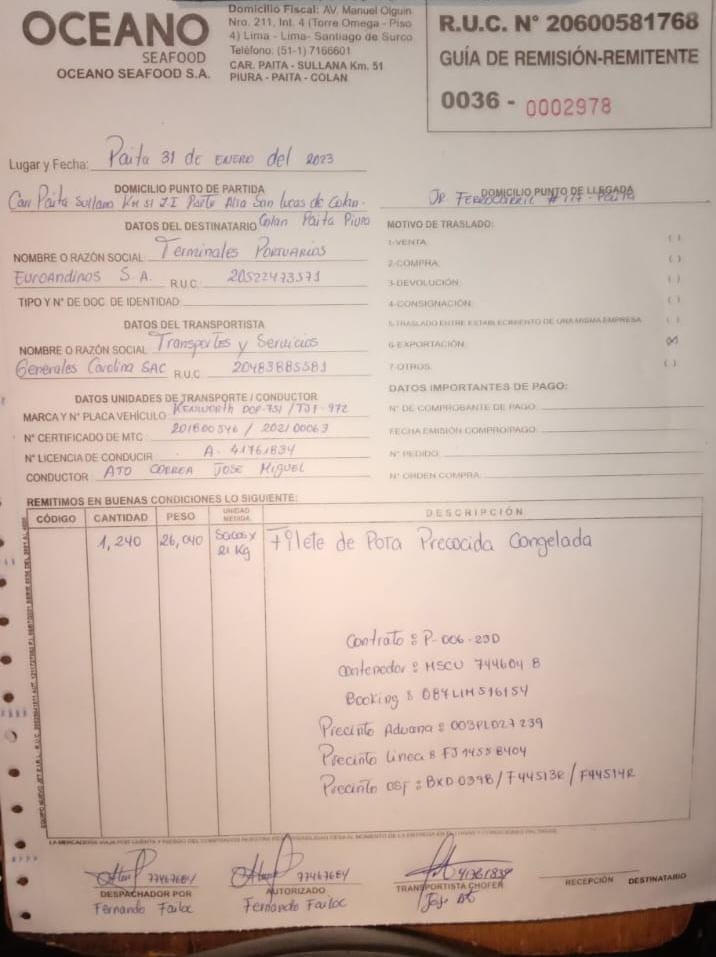 OCEANO
SEAFOOD
OCEANO SEAFOOD S.A.
Domicilio Fiscal: AV. Manuel Olguin
Nro. 211, Int. 4 (Torre Omega - Piso
4) Lima - Lima- Santiago de Surco
Teléfono: (51-1) 7166601
CAR. PAITA - SULLANA Km. 51
PIURA - PAITA - COLAN
R.U.C. N° 20600581768
GUÍA DE REMISIÓN-REMITENTE
0036 - 0002978
Lugar y Fecha: Paita 31 de ENERO del 2023
DOMICILIO PUNTO DE PARTIDA
Carr Paita Sullana Km 51 Z.I Parte Alta San Lucas de Colan-
Colan Paita Piura
DOMICILIO PUNTO DE LLEGADA
JR. FERROCARRIL # 127 - Paita
DATOS DEL DESTINATARIO
NOMBRE O RAZÓN SOCIAL Terminales Portuarios
EuroAndinos S.A. R.U.C. 20522473571
TIPO Y N° DE DOC. DE IDENTIDAD:
MOTIVO DE TRASLADO:
1-VENTA ( )
2-COMPRA ( )
3-DEVOLUCIÓN ( )
4-CONSIGNACIÓN: ( )
5-TRASLADO ENTRE ESTABLECIMIENTO DE UNA MISMA EMPRESA ( )
6-EXPORTACIÓN: (x)
7-OTROS: ( )
DATOS DEL TRANSPORTISTA
NOMBRE O RAZÓN SOCIAL Transportes y Servicios
Generales Carolina SAC R.U.C 20483885581
DATOS UNIDADES DE TRANSPORTE / CONDUCTOR
MARCA Y N° PLACA VEHÍCULO Kenworth
N° CERTIFICADO DE MTC: 201800546 / 202100063
N° LICENCIA DE CONDUCIR: A- 41761834
CONDUCTOR: ATO CORREA JOSE Miguel
DATOS IMPORTANTES DE PAGO:
N° DE COMPROBANTE DE PAGO:
FECHA EMISIÓN COMPRO/PAGO:
N° PEDIDO:
N° ORDEN COMPRA:
REMITIMOS EN BUENAS CONDICIONES LO SIGUIENTE:
CÓDIGO CANTIDAD PESO UNIDAD MEDIDA DESCRIPCIÓN
1,240 26,040 Sacos x 21 Kg Filete de Pota Precocida Congelada
Contrato: P-006-23D
Contenedor: MSCU 744604 8
Booking: 084LIM516154
Precinto Aduana: 003PL027239
Precinto Linea: FJ14558404
Precinto OSF: BXD0398/F44513R/F44514R
77467684
DESPACHADOR POR
Fernando Failoc
77467684
AUTORIZADO
Fernando Failoc
TRANSPORTISTA CHOFER
RECEPCIÓN DESTINATARIO